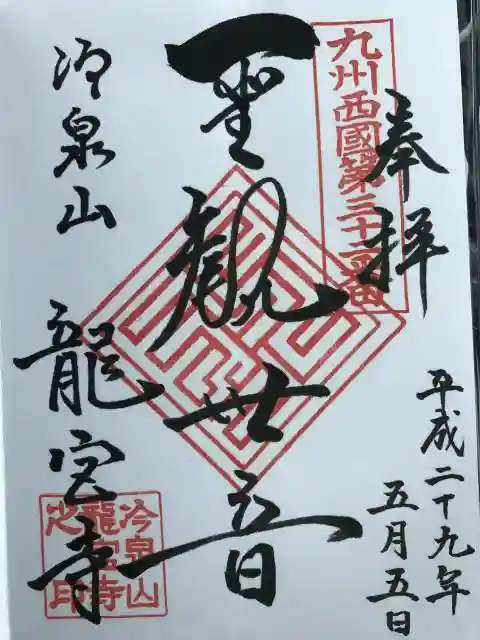 奉拝
九州西國第三十二番
平成二十九年
五月五日
聖観世音
冷泉山 龍宮寺
冷泉山
龍宮寺
之印